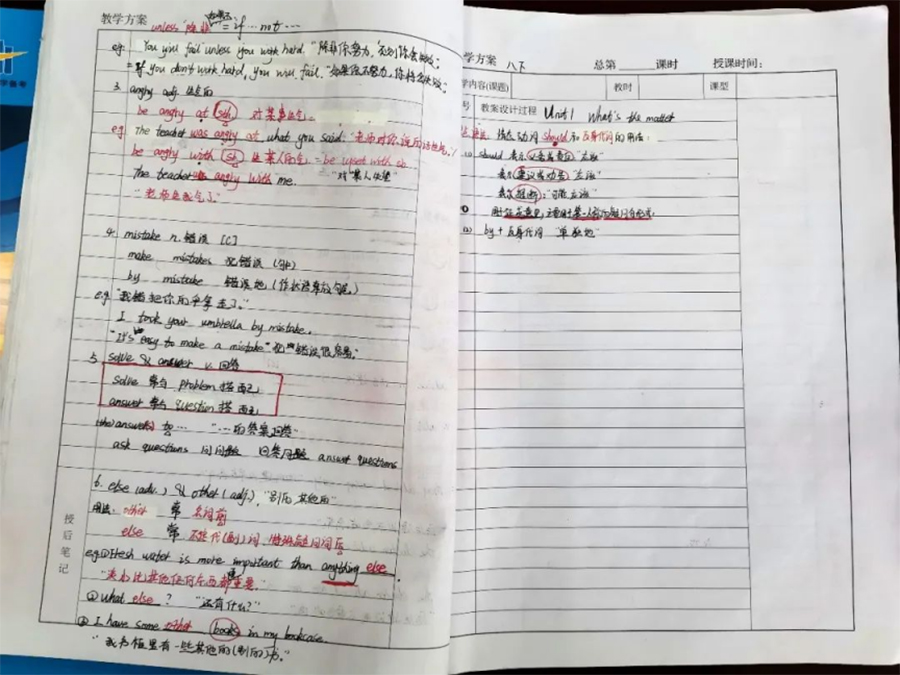 教学方案
unless "除非" = if … not …
eg: You will fail unless you work hard. "除非你努力,否则你会失败;
= If you don't work hard, you will fail. "如果你不努力,你将会失败;
3. angry adj. 生气的
be angry at sth 对某事生气 =
eg The teacher was angry at what you said. "老师对你说的话生气."
be angry with sb 生某人的气 = be upset with sb
The teacher is angry with me. "对某人失望"
"老师生我气了"
4. mistake n. 错误 [C]
make mistakes 犯错误
by mistake 错误地 (作状语常放句尾)
e.g. "我错把你的伞拿走了."
I took your umbrella by mistake.
"It's easy to make a mistake" 犯错误很容易."
5. solve & answer v. 回答
solve 常与 problem 搭配
answer 常与 question 搭配
(the) answer to … "…的答案/回答"
ask questions 问问题 回答问题 answer questions
6. else (adv.) & other (adj.), "别的 其他的"
用法: other 常 名词前
else 常 不定代(副)词,特殊疑问词后
e.g. ① Fresh water is more important than anything else.
"淡水比其他任何东西都重要."
① What else? "还有什么?"
② I have some other books in my bookcase.
"我书柜里有一些其他的(别的)书."
授后笔记
学方案 八下 总第 课时 授课时间:
学内容(课题) 教时 课型
号 教案设计过程 Unit 1 What's the matter
情态动词 should 和 反身代词的用法:
(1) should 表示义务或责任 "应该"
表示建议或劝告 "应该"
表示推断: "可能,应该"
(2) by + 反身代词 "单独地"